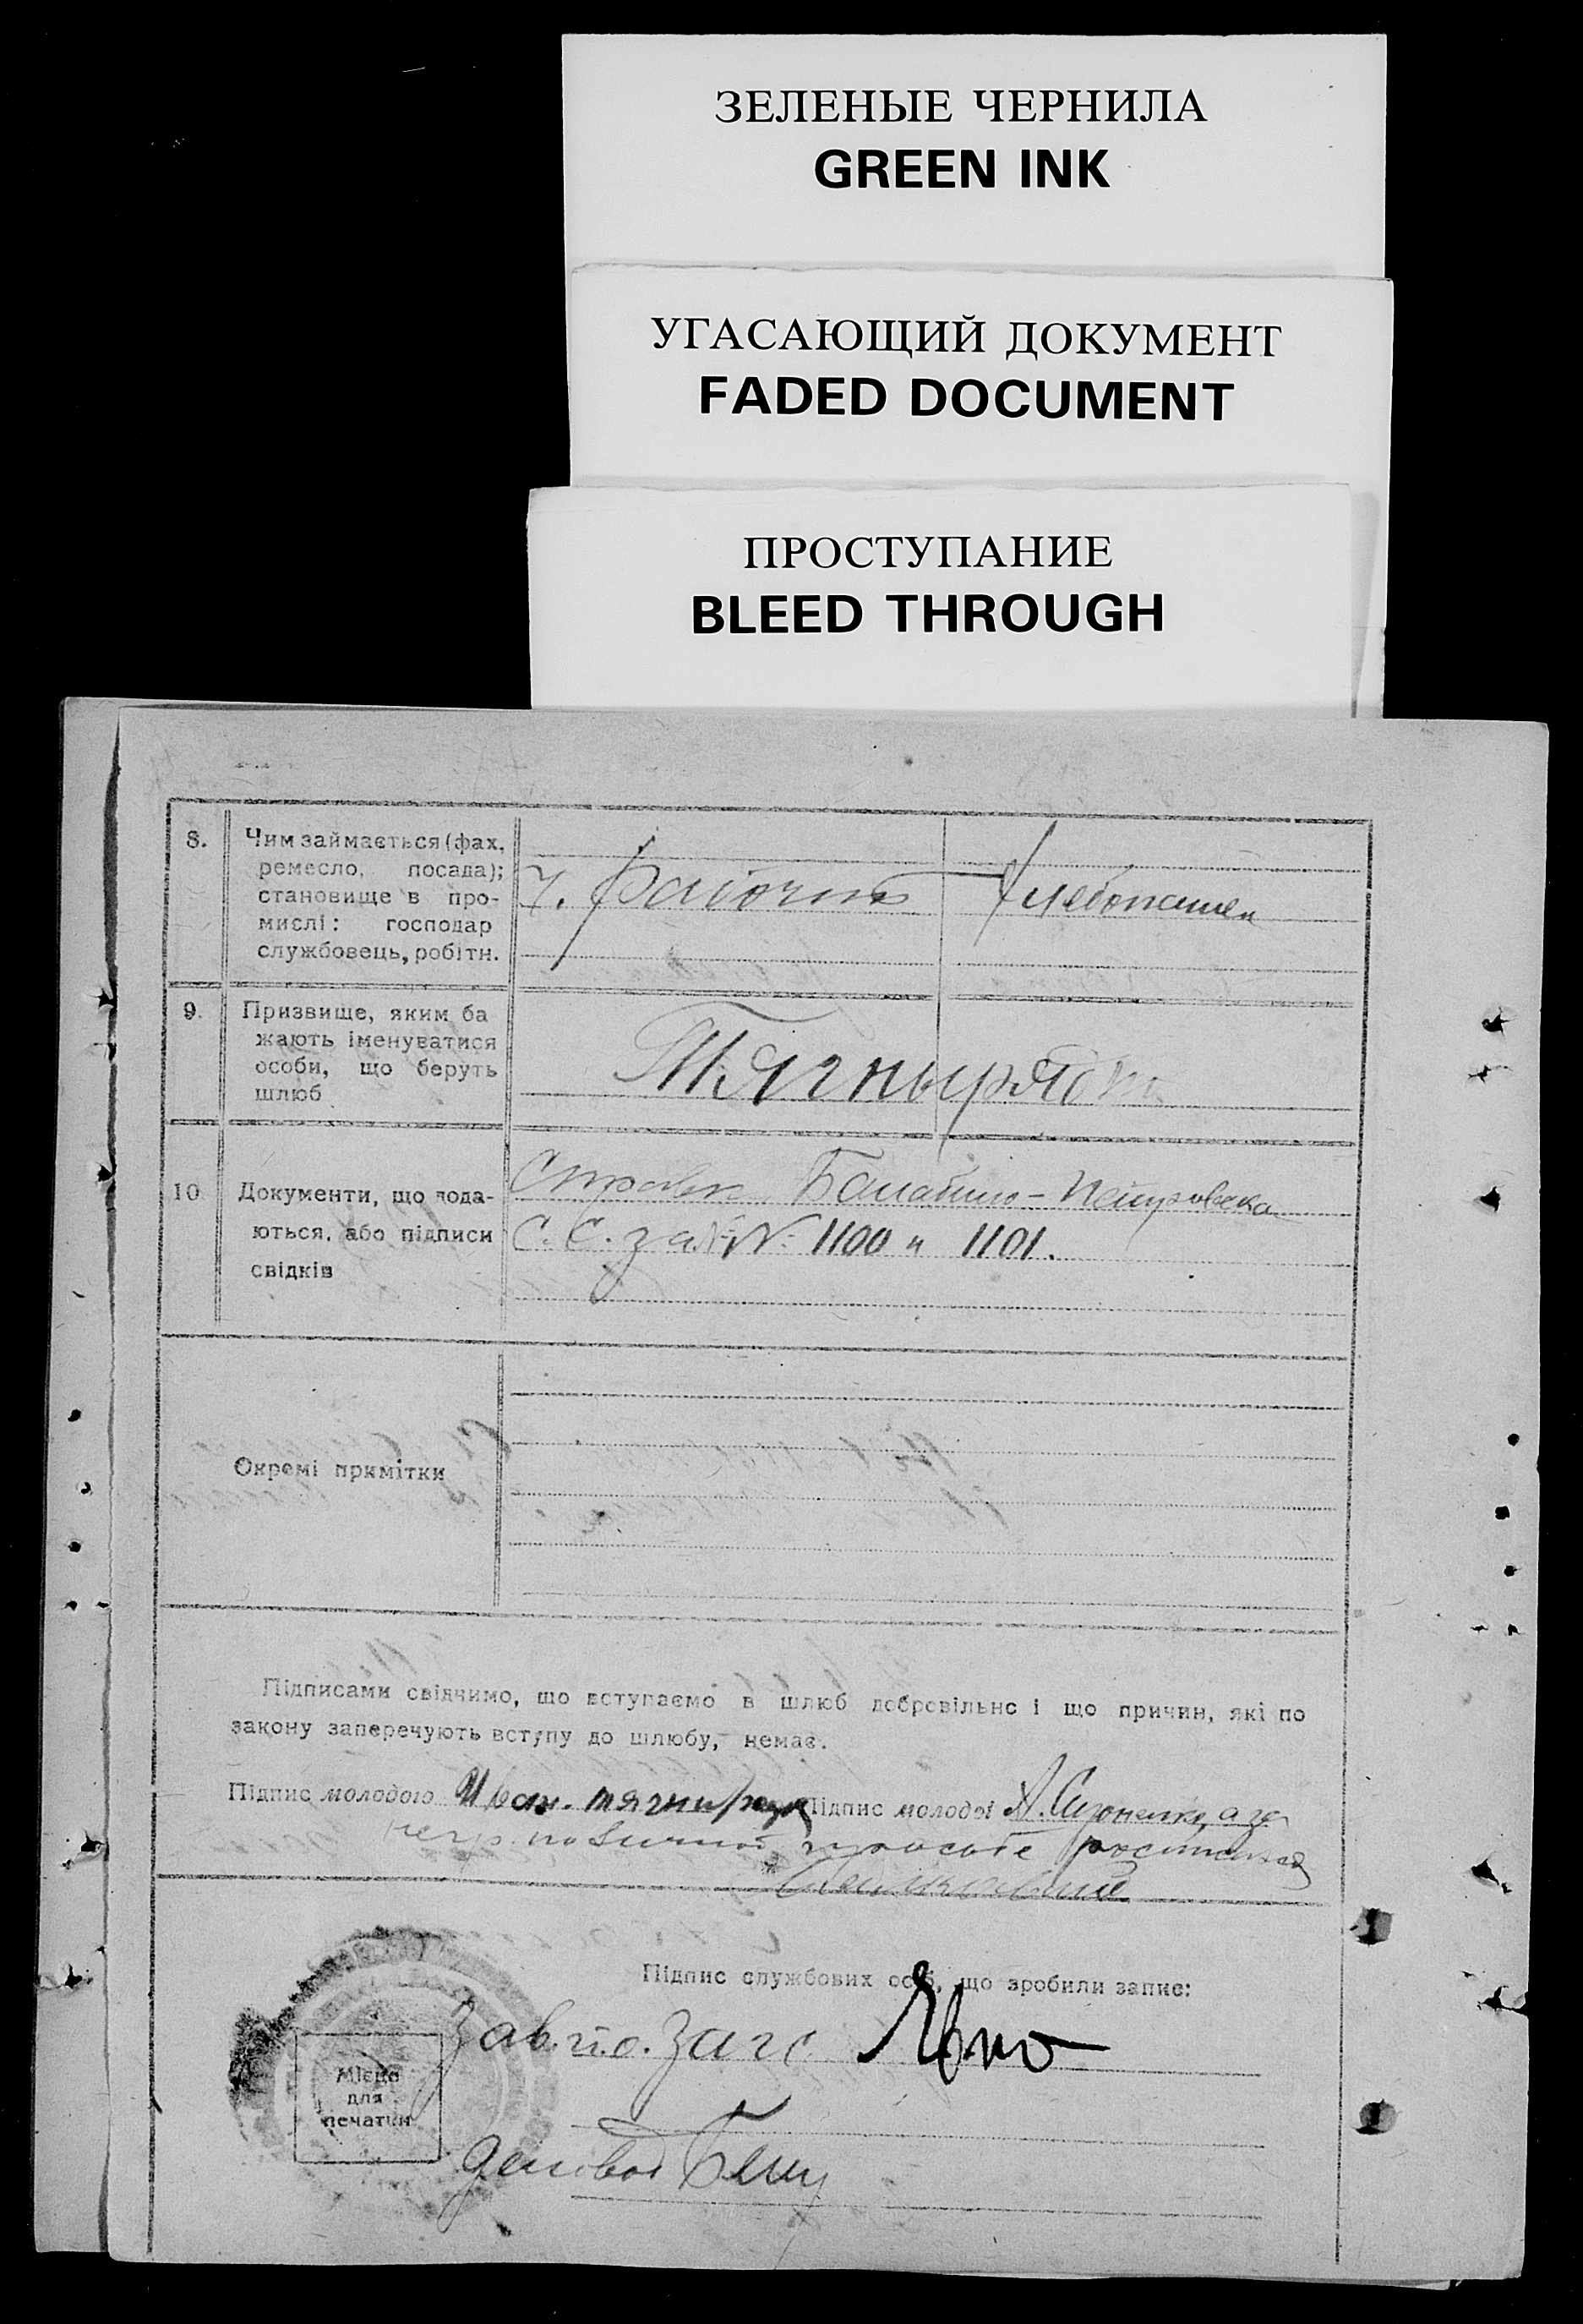 ЗЕЛЕНЫЕ ЧЕРНИЛА
GREEN INK
УГАСАЮЩИЙ ДОКУМЕНТ
FADED DOCUMENT
ПРОСТУПАНИЕ
BLEED THROUGH
8.
Чим займається (фах,
ремесло, посада);
становище в про-
мислі: господар
службовець, робітн.
Ч. Рабочий
Хлебопашец
9.
Призвище, яким ба
жають іменуватися
особи, що беруть
шлюб
Тягнырядно
10
Документи, що пода-
ються, або підписи
свідків
Справки Балабино-Петровска
С. С. за №№ 1100 и 1101.
Окремі примітки
Підписами свідчимо, що вступаємо в шлюб добровільно і що причин, які по
закону заперечують вступу до шлюбу, немає.
Підпис молодого Иван. Підпис молодої А. за
негр. по личной просьбе
Підпис службових осіб, що зробили запис:
Зав. п.о. Загс
Місце
для
печатки